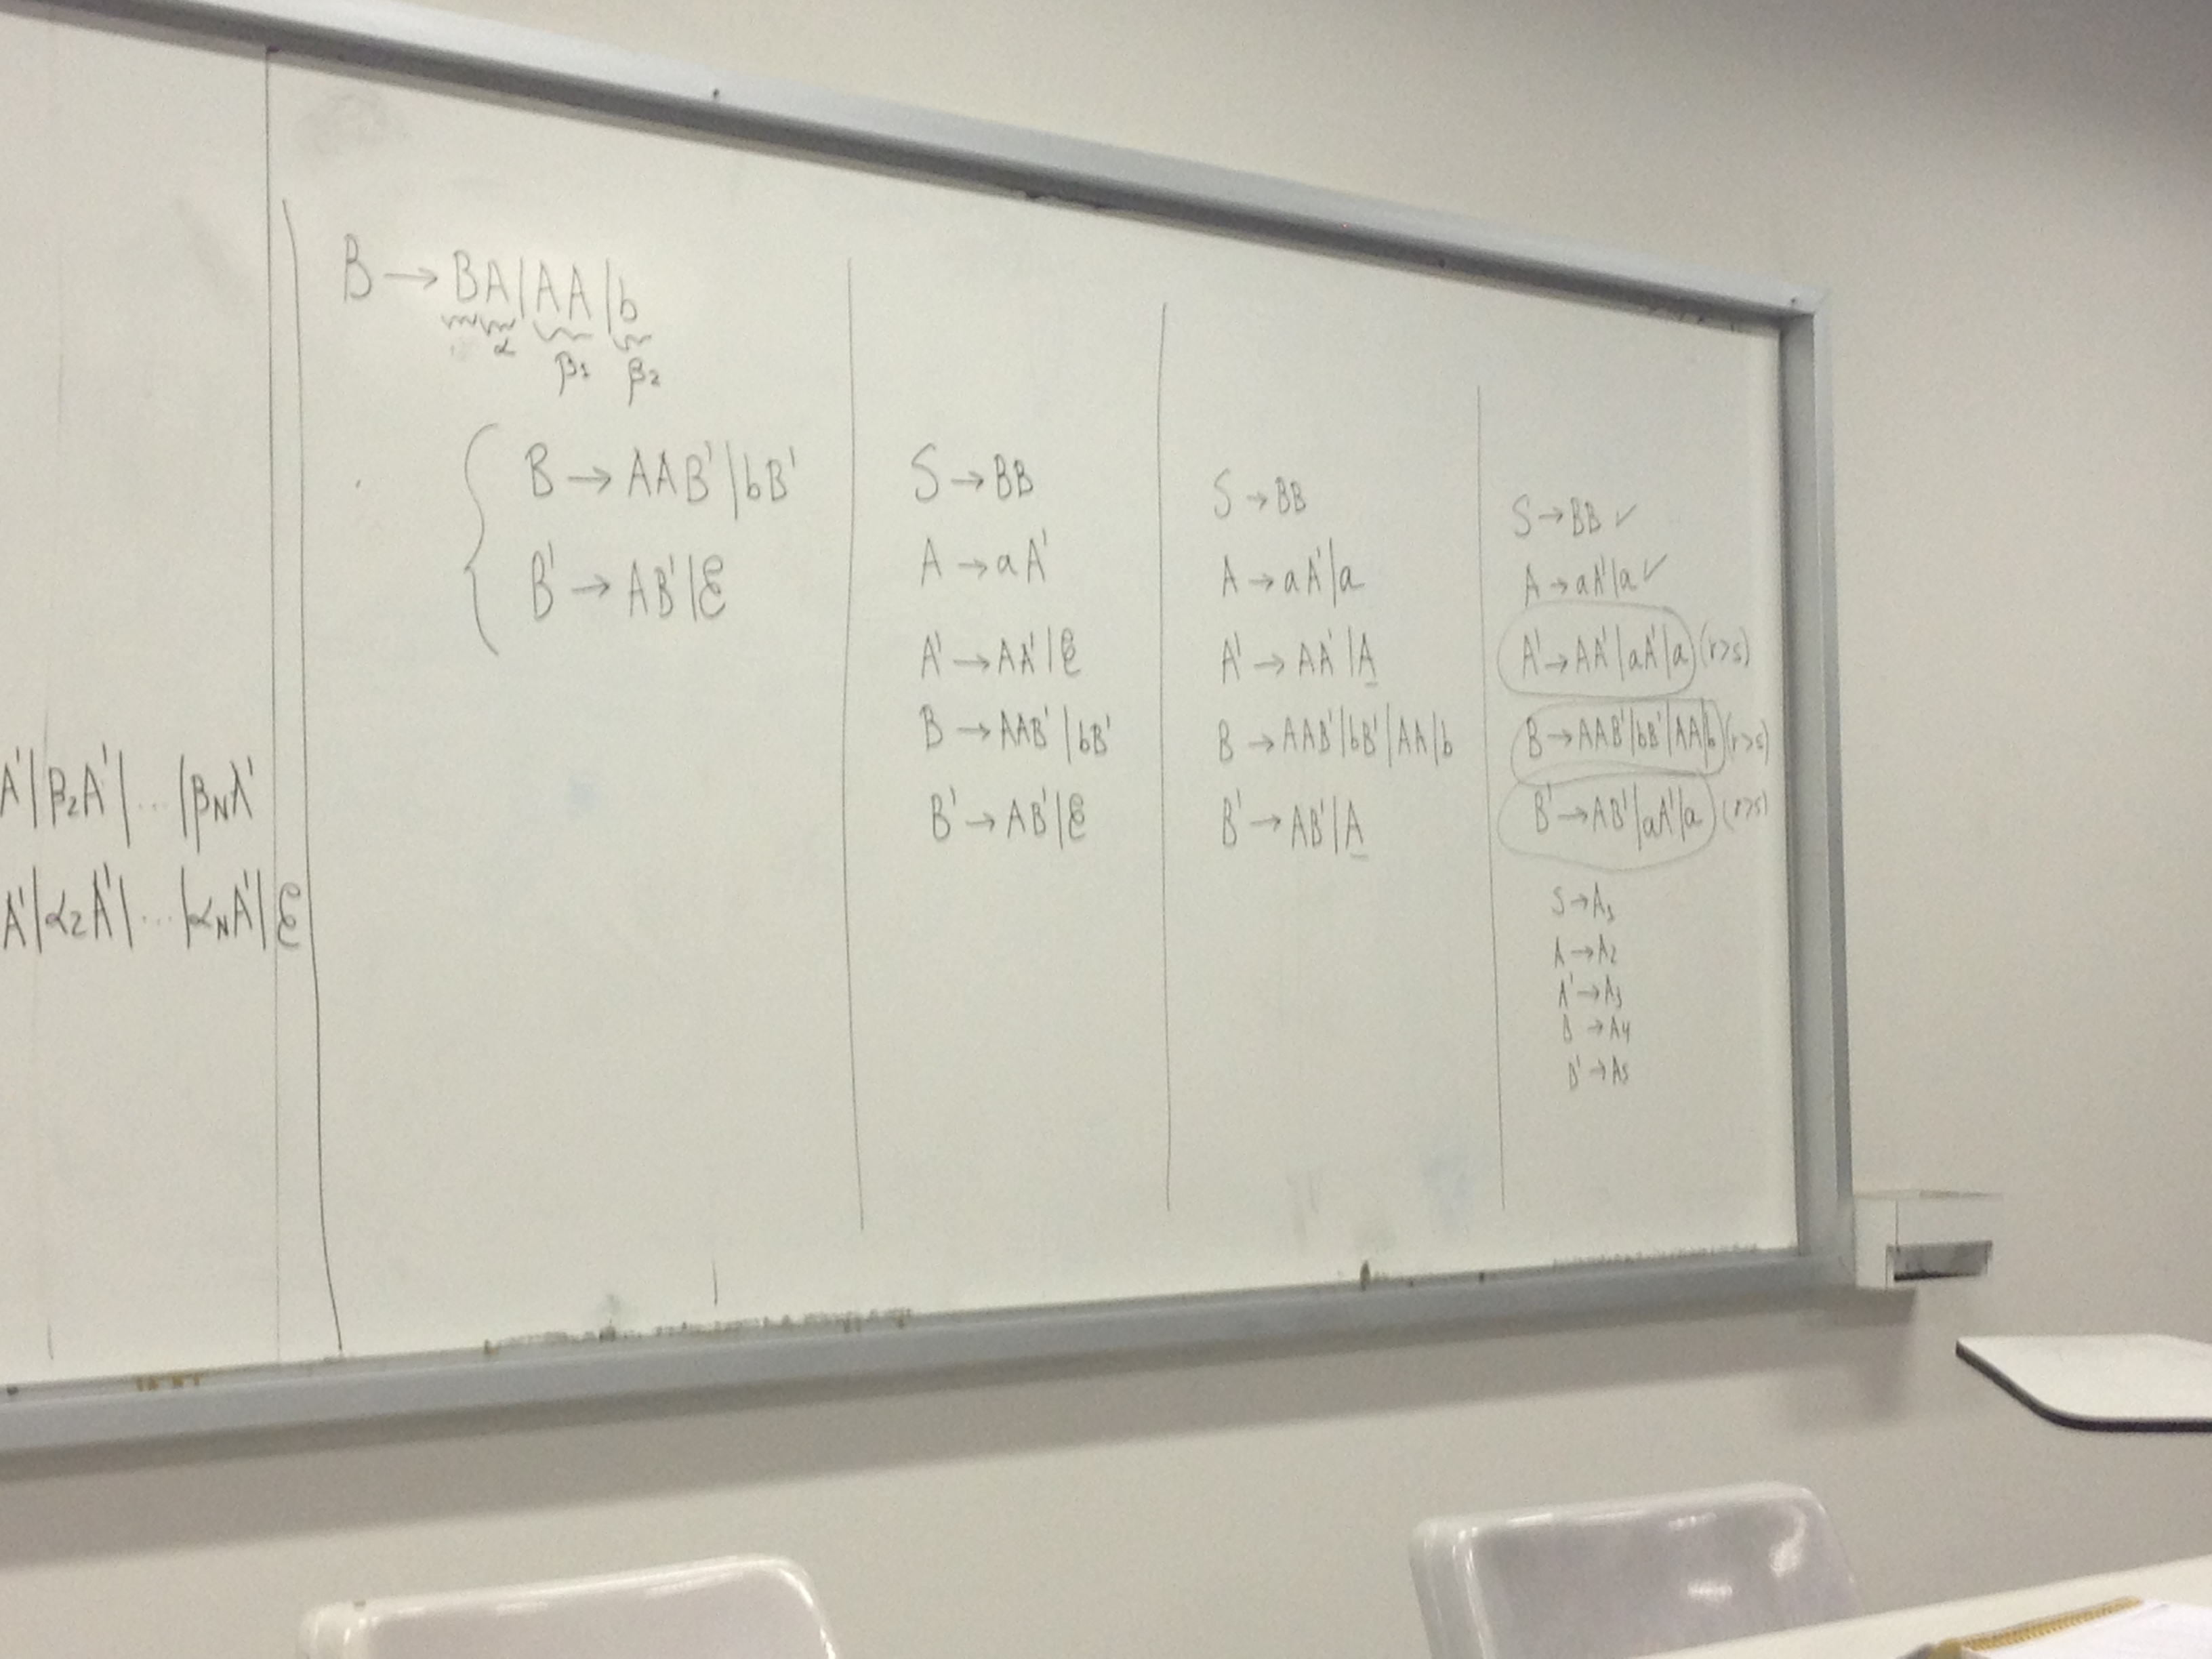 A'|β₂A'|...|βₙA'
A'|α₂A'|...|αₙA'|ε
B → BA|AA|b
α
β₁ β₂
B → AAB'|bB'
B' → AB'|ε
S → BB
A → aA'
A' → AA'|ε
B → AAB'|bB'
B' → AB'|ε
S → BB
A → aA'|a
A' → AA'|A
B → AAB'|bB'|AA|b
B' → AB'|A
S → BB ✓
A → aA'|a ✓
A' → AA'|aA'|a (r>s)
B → AAB'|bB'|AA|b (r>s)
B' → AB'|aA'|a (r>s)
A → A₂
B → A₄
B' → A₅